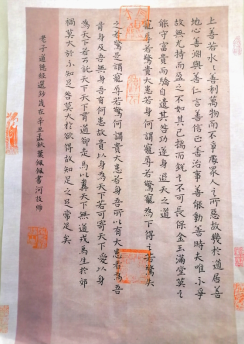 上善若水水善利萬物而不爭處眾人之所惡故幾於道居善
地心善淵與善仁言善信正善治事善能動善時夫唯不爭
故無尤持而盈之不如其已揣而銳之不可長保金玉滿堂莫之
能守富貴而驕自遺其咎功遂身退天之道
寵辱若驚貴大患若身何謂寵辱若驚寵為下得之若驚失
之若驚是謂寵辱若驚何謂貴大患若身吾所以有大患者為吾
有身及吾無身吾有何患故貴以身為天下若可寄天下愛以身
為天下若可託天下天下有道卻走馬以糞天下無道戎馬生於郊
禍莫大於不知足咎莫大於欲得故知足之足常足矣
老子道德經選抄歲在辛丑